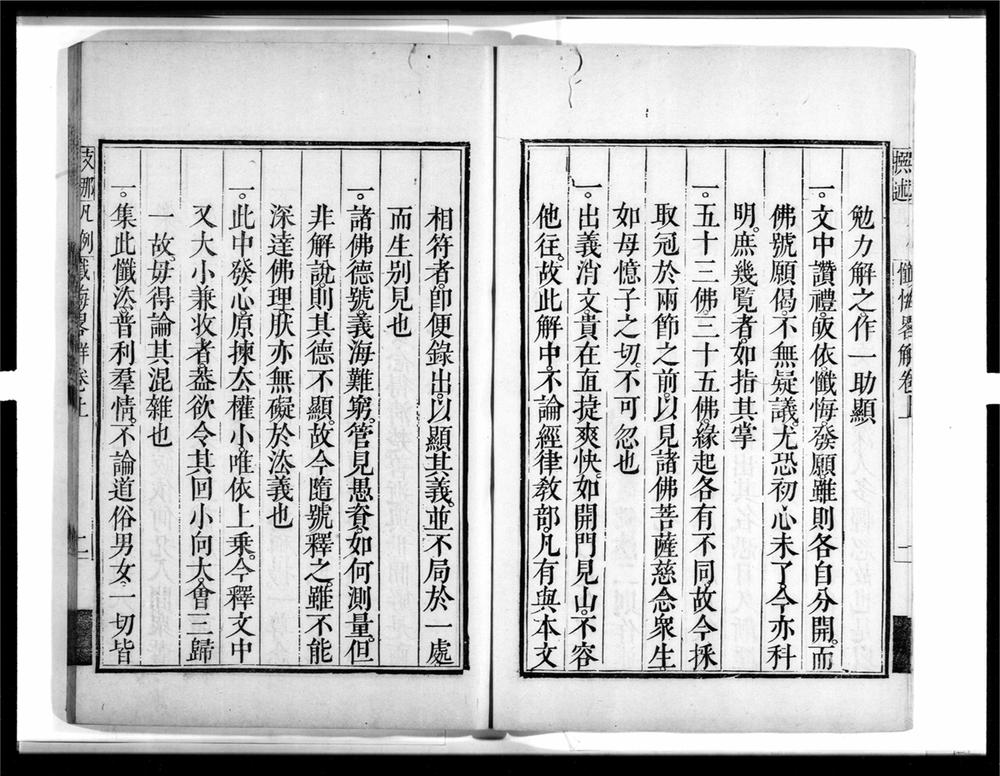 勉力解之。作一助顯
一。文中讚禮。皈依。懺悔。發願雖則各自分開。而
佛號願偈。不無疑議。尤恐初心未了。今亦科
明。庶幾覽者。如指其掌
一。五十三佛。三十五佛。緣起各有不同。故今採
取冠於兩節之前。以見諸佛菩薩慈念眾生。
如母憶子之切。不可忽也
一。出義消文。貴在直捷爽快。如開門見山。不容
他往。故此解中。不論經律教部。凡有與本文
相符者。卽便錄出。以顯其義。並不局於一處
而生別見也
一。諸佛德號。義海難窮。管見愚資。如何測量。但
非解說則其德不顯。故今隨號釋之。雖不能
深達佛理。肤亦無礙於法義也
一。此中發心。原揀去權小。唯依上乘。今釋文中
又大小兼收者。葢欲令其回小向大。會三歸
一故。毋得論其混雜也
一。集此懺法。普利羣情。不論道俗男女。一切皆
撰述
懺悔畧解卷上
二
支那
凡例
懺悔畧解卷上
二